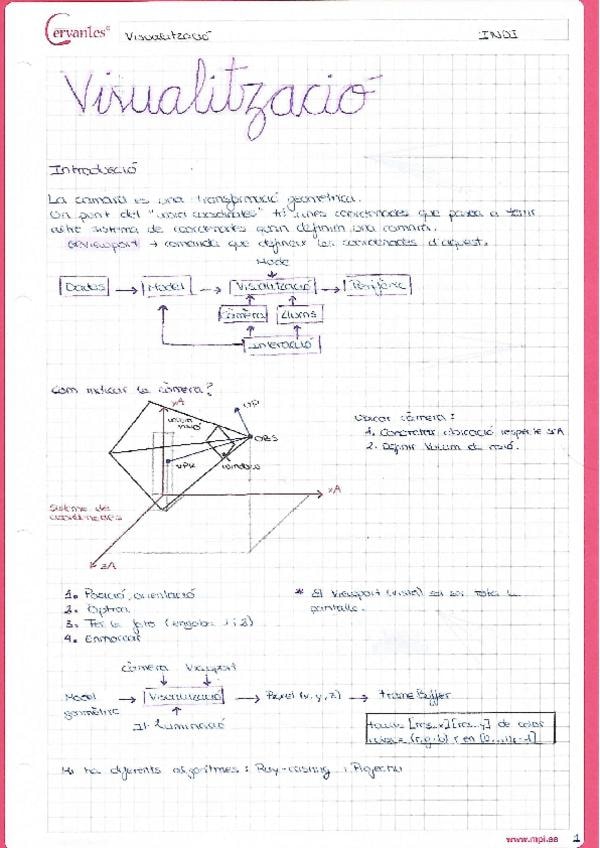 Cervantes®
Visualització
INDI
Visualització
Introducció
La càmara és una transformació geomètrica.
Un punt del "món coordenades" té unes coordenades que passa a tenir
altre sistema de coordenades quan definim una
glViewport → comanda que defineix les coordenades d'aquest.
Mode
Dades → Model → Visualització → Perifèric
Càmera
Llums
Interacció
Com indicar la càmera?
YA
UP
volum visió
OBS
VPR
window
XA
Sistema de coordenades
ZA
Ubicar càmera:
1. Concretar ubicació respecte SA
2. Definir Volum de visió.
1. Posició, orientació
2. Òptica
3. Fer la foto (engloba 1 i 2)
4. Enmarcar
* El Viewport (vista) sol ser tota la
pantalla.
Càmera Viewport
Model geomètric → Visualització → Pixel (x,y,z) → Frame Buffer
Il·luminació
de color
color = (r,g,b)
Hi ha diferents algorismes: Ray-casting i Projectiu
www.mpi.es
1